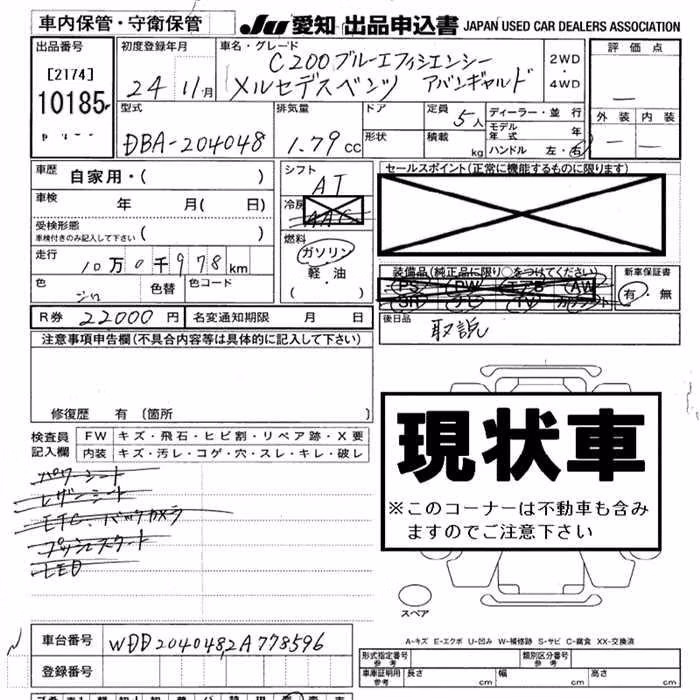 車内保管・守衛保管 JU 愛知 出品申込書 JAPAN USED CAR DEALERS ASSOCIATION
出品番号 初度登録年月 車名・グレード 評価点
[2174] 24 11月 C200ブルーエフィシエンシー 2WD・4WD
10185 メルセデスベンツ アバンギャルド —
型式 排気量 ドア 定員 ディーラー・並行 外装 内装
DBA-204048 1.79cc 5人 モデル年式 年 — —
形状 積載 kg ハンドル 左・右
車歴 自家用・( ) シフト AT セールスポイント(正常に機能するものに限ります)
車検 年 月( 日) 冷房 AAC
受検形態 車検付きのみ記入して下さい ( ) 燃料
走行 10万0千978km ガソリン 装備品(純正品に限り○をつけてください) 新車保証書
軽・油 PS PW エアB AW 有・無
色 シロ 色替 色コード ( ) SR ナビ TV カワシート
R券 22000円 名変通知期限 月 日 後日品 取説
注意事項申告欄(不具合内容等は具体的に記入して下さい)
修復歴 有 (箇所 )
現状車
※このコーナーは不動車も含み
ますのでご注意下さい
検査員記入欄 FW キズ・飛石・ヒビ割・リペア跡・X要
内装 キズ・汚レ・コゲ・穴・スレ・キレ・破レ
パワーシート
レザーシート
ETC、バックカメラ
プッシュスタート
LED
スペア
A-キズ E-エクボ U-凹み W-補修跡 S-サビ C-腐食 XX-交換済
車台番号 WDD2040482A778596
形式指定番号 参考 類別区分番号 参考
登録番号 車庫証明用 参考 長さ cm 幅 cm 高さ cm